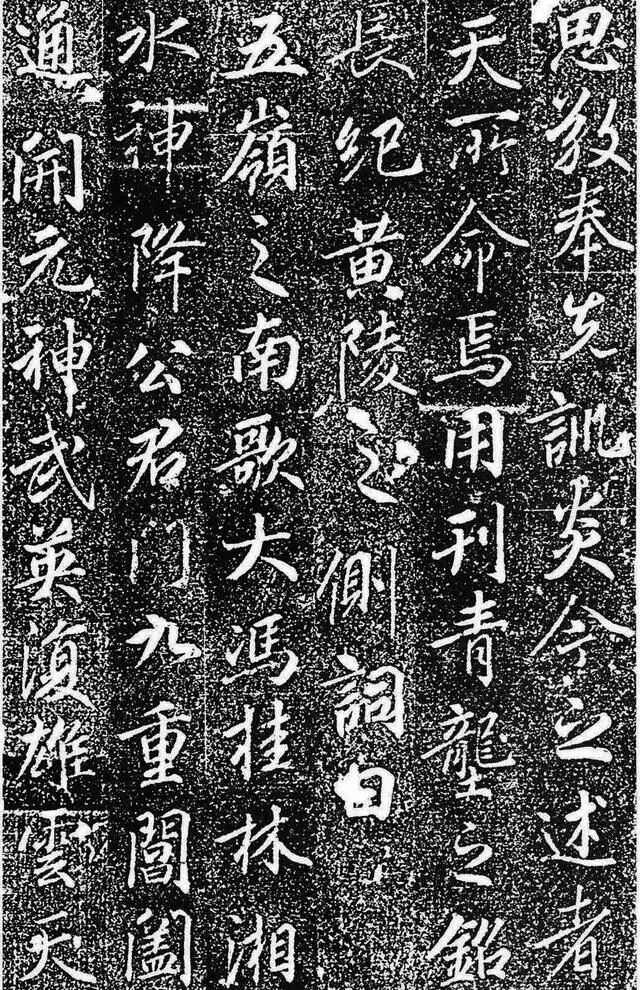 思敬奉先訓炎今之述者
天所命焉用刊青壟之銘
長紀黃陵之側詞曰
五嶺之南歌大馮桂林湘
水神降公君門九重閶闔
通開元神武英復雄雲天